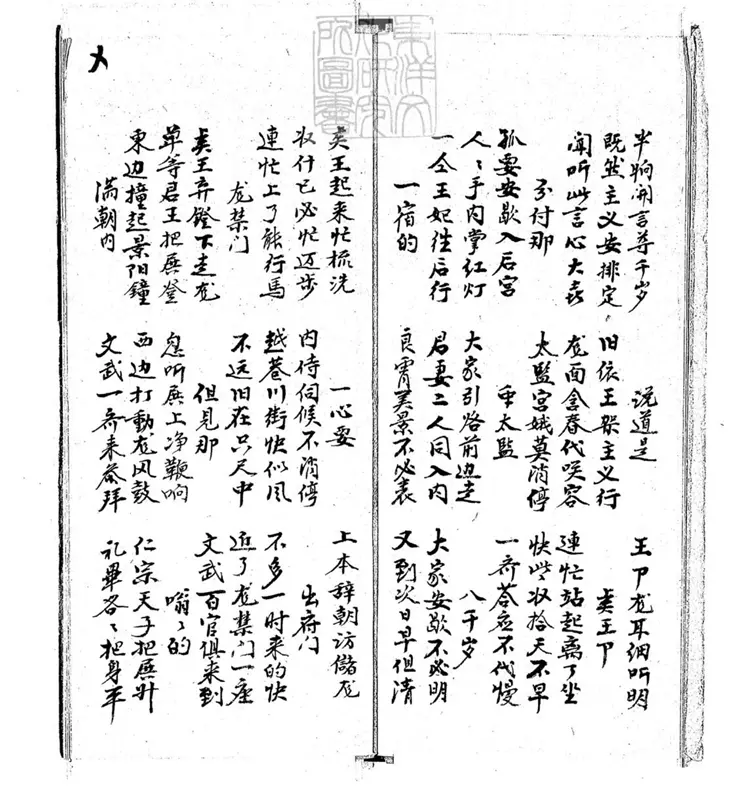 東洋文
化研究
所圖書
半晌開言尊千岁 说道是 王卩龙耳细听明
既然主义安排定 旧依王架主义行 贤王卩
闻听此言心大喜 龙面含春代咲容 連忙站起离了坐
分付那 太監宫娥莫消停 快些収拾天不早
孤要安歇入后宫 众太監 一齐荅应不代慢
人〻手内掌红灯 大家引路前边走 八千岁
一仝王妃往后行 君妻二人同入内 大家安歇不必明
一宿的 良宵美景不必表 又到次日早但清
贤王起来忙梳洗 一心要 上本辞朝访儲龙
収什已必忙迈步 内侍伺候不消停 出府门
連忙上了能行馬 越巷川街快似风 不多一时来的快
龙禁门 不远旧在只尺中 近了龙禁门一座
贤王弃鐙下走龙 但见那 文武百官俱来到
单等君王把殿登 忽听殿上净鞭响 嗡〻的
東边撞起景阳鐘 西边打動龙凤鼓 仁宗天子把殿升
满朝内 文武一齐来参拜 礼畢各〻把身平